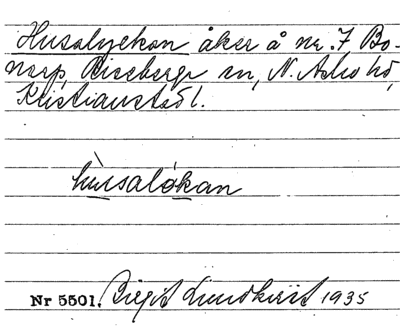 Husalyckan åker å nr. 7 Bo-
narp, Riseberga sn, N. Åsbo hd,
Kristianstad l.
husalökan
Nr 5501. Birgit Lundkvist 1935